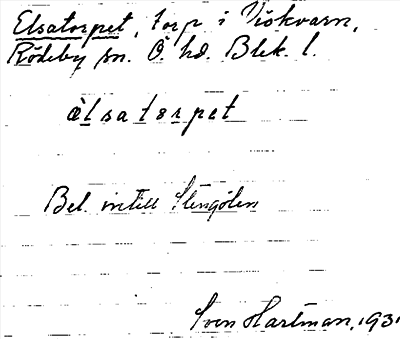 Elsatorpet, torp i Viökvarn,
Rödeby sn. Ö. hd. Blek. l.
ælsatorpet
Bel. intill Stengölen
Sven Hartman, 1931